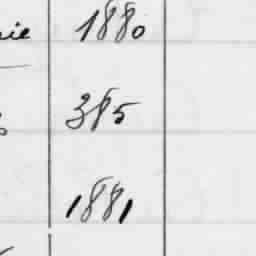 nie 1880
385
1881